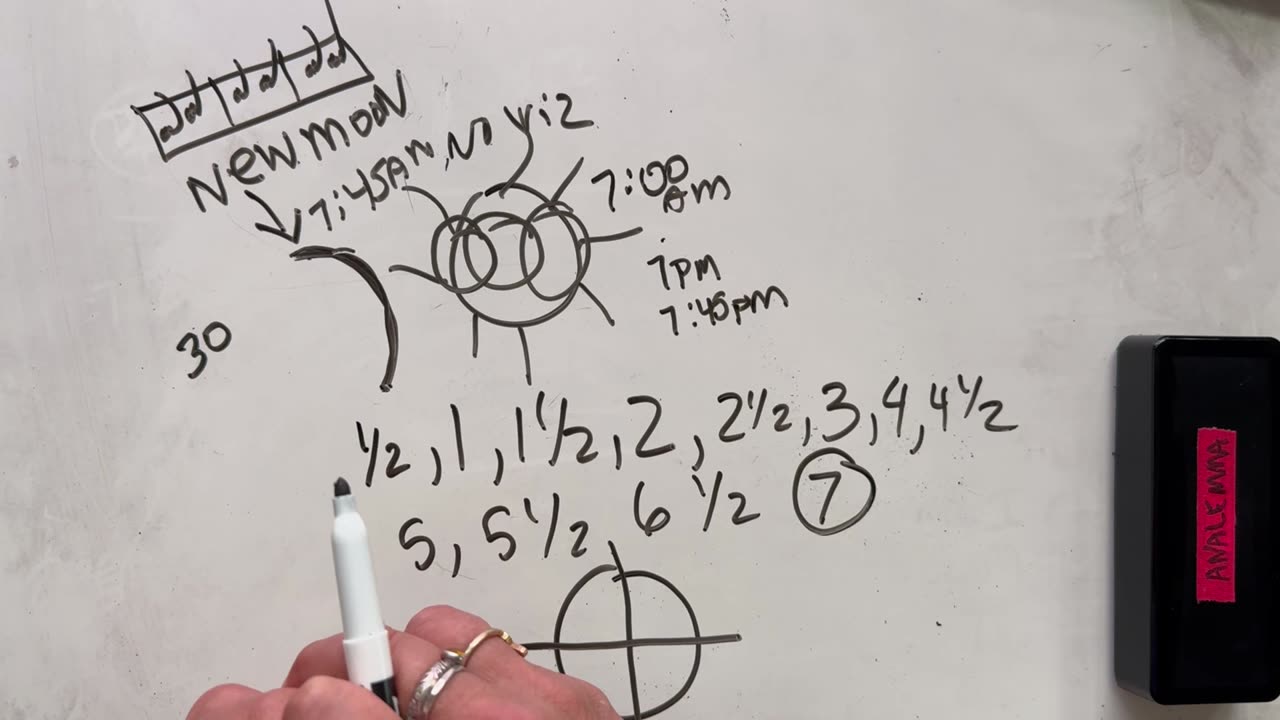 NEW MOON
7:45AM NO Viz
7:00
AM
7pm
7:45pm
30
1/2, 1, 1 1/2, 2, 2 1/2, 3, 4, 4 1/2
5, 5 1/2, 6 1/2 7
ANALEMMA